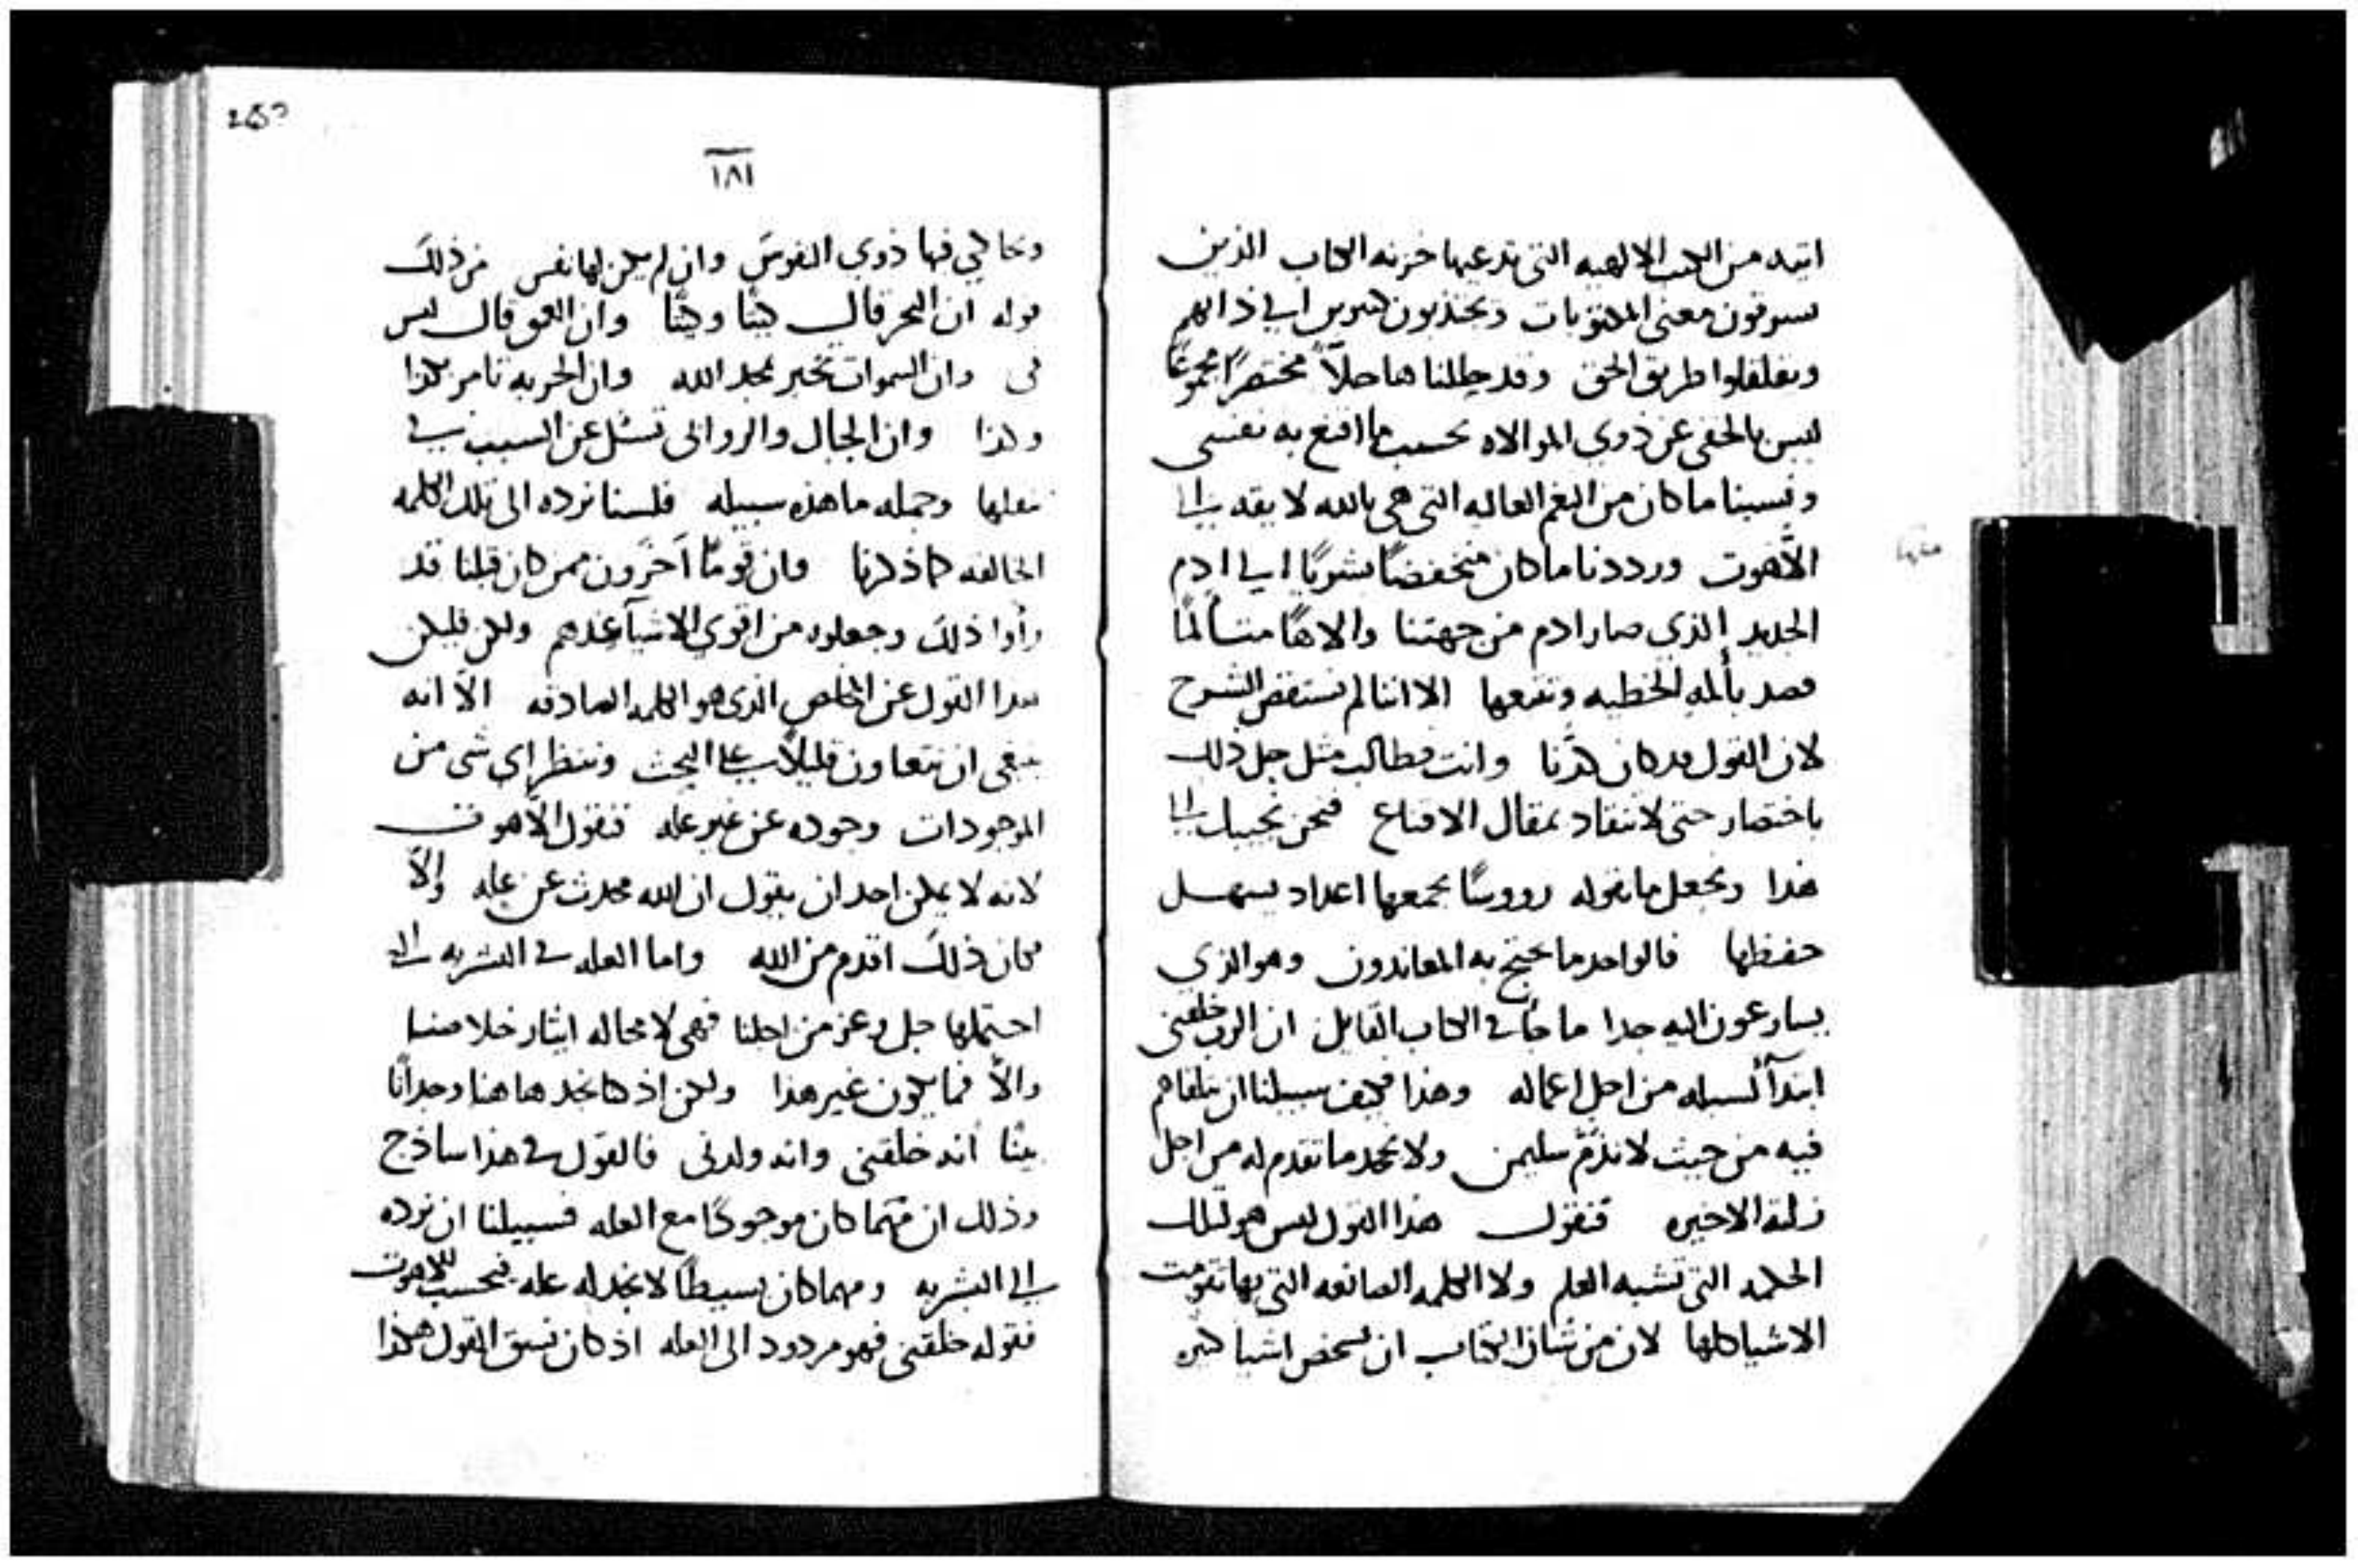 اتيه من الكتب الالهيه التى تدعيها خزنه الكتاب الذين
يسرقون معنى المكتوبات ويجتذبون كثيرين الى ذاتهم
ويقلقلوا طريق الحق وقد حللناها حلاً مختصرًا مجموعًا
ليس بالخفى عن ذوي الموالاه بحسب ما اقنع به نفسى
ونسبنا ما كان من النغم العاليه التى هى بالله لايقه الى
اللاهوت ورددنا ما كان منخفضًا بشريًا الى ادم
الجديد الذي صار ادم من جهتنا والاهًا متسألمًا
قصد بألمه الخطيه الا اننا لم نستقص الشرح
لان القول قد كان كدنا وانت فطالب مثل حل ذلك
باختصار حتى لا تنقاد بمقال الاقناع فنحن نجيبك الى
هذا ونجعل ما نقوله رووسًا يجمعها اعداد يسهل
حفظها فالواحد ما يحتج به المعاندون وهو الذي
يسارعون اليه جدا ما جأ في الكتاب القايل ان الرب خلقنى
ابتدآ لسبله من اجل اعماله وهذا فكيف سبيلنا ان نلقاهم
فيه من حيث لا نذم سليمن ولا نجحد ما تقدم له من اجل
زلته الاخيره فنقول هذا القول ليس هو لتلك
الحكمه التى تشبه العلم ولا الكلمه الصانعه التى بها تقومت
الاشيا كلها لان من شان الكتاب ان يشخص اشيا كثيره
٢٤٥
١٨١
ويحاكي فيها ذوي النفوس وان لم يكن لها نفس من ذلك
قوله ان البحر قال كيتًا وكيتًا وان العمق قال ليس
فى وان السموات تخبر بمجد الله وان الحربه تامر بكذا
وكذا وان الجبال والروابى تسئل عن السبب في
نقلها وجمله ما هذه سبيله فلسنا نرده الى تلك الكلمه
الخالقه كما ذكرنا وان قومًا اخرون ممن كان قبلنا قد
رأوا ذلك وجعلوه من اقوي الاشيآ عندهم ولكن فليكن
هذا القول عن المخلص الذى هو الكلمه الصادقه الا انه
ينبغى ان نتعاون قليلاً على البحث وننظر اي شى من
الموجودات وجوده عن غير عله فنقول اللاهوت
لانه لا يمكن احد ان يقول ان الله محدث عن عله والا
فكان ذلك اقدم من الله واما العله في البشريه التى
احتملها جل وعز من اجلنا فهى لا محاله ايثار خلاصنا
والا فما يكون غير هذا ولكن اذ كنا نجد هاهنا وجدانًا
بينًا انه خلقنى وانه ولدنى فالقول في هذا ساذج
وذلك ان مهما كان موجودًا مع العله فسبيلنا ان نرده
الى البشريه ومهما كان بسيطًا لا نجد له عله فنحسبه للاهوت
فقوله خلقنى فهو مردود الى العله اذ كان نسق القول هكذا